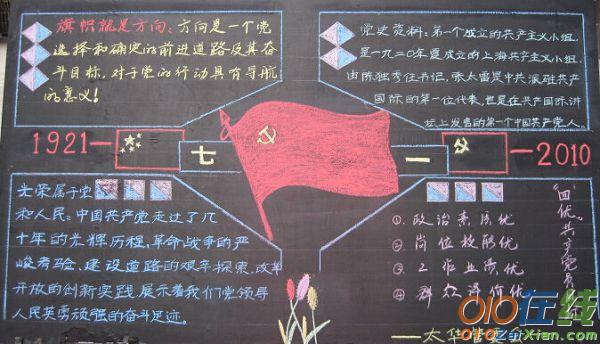 旗帜就是方向：方向是一个党
选择和确定的前进道路及其奋
斗目标，对于党的行动具有导航
的意义！
党史资料：第一个成立的共产主义小组，
是一九二〇年夏成立的上海共产主义小组，
由陈独秀任书记，张太雷是中共派驻共产
国际的第一位代表，也是在共产国际讲
坛上发言的第一个中国共产党人。
1921—
七
一
—2010
光荣属于党
和人民：中国共产党走过了几
十年的光辉历程，革命战争的严
峻考验、建设道路的艰辛探索，改革
开放的创新实践，展示着我们党领导
人民英勇顽强的奋斗足迹。
"四优"共产党员
①、政治素质优
②、岗位技能优
③、工作业绩优
④、群众评价优
——太华管
010在线
010ZaiXian.com